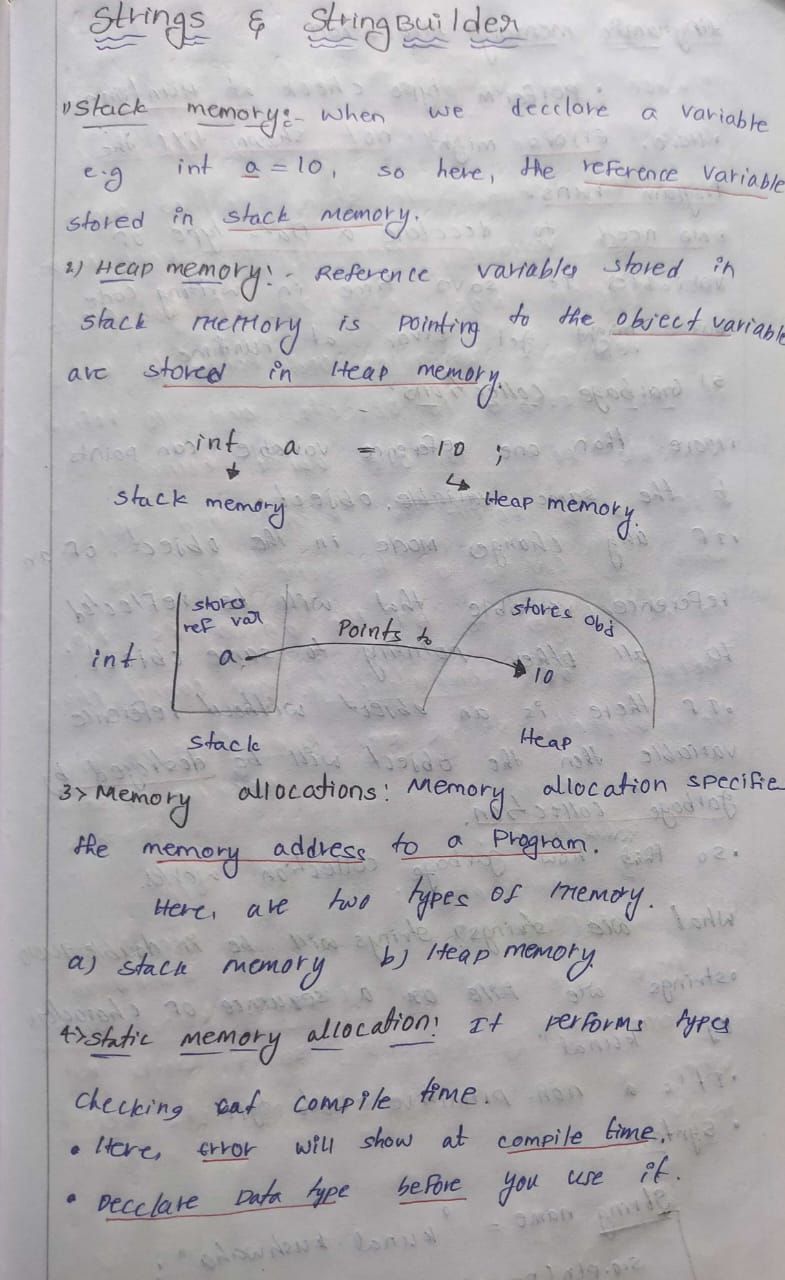 Strings & StringBuilder
1) Stack memory:- when we decclore a variable
e.g int a = 10, so here, the reference variable
stored in stack memory.
2) Heap memory:- Reference variables stored in
stack memory is pointing to the object variable
are stored in Heap memory.
int a = 10 ;
stack memory Heap memory.
stores stores obj
ref var Points to
int a 10
stack Heap
3> Memory allocations: Memory allocation specifie
the memory address to a program.
Here, are two types of memory.
a) stack memory b) Heap memory.
4> static memory allocation: It performs types
checking at compile time.
• Here, error will show at compile time.
• Decclare Data type before you use it.